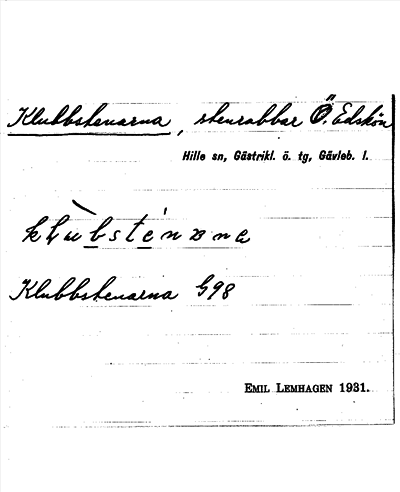 Klubbstenarna, stenrabbar Ö. Edskön
Hille sn, Gästrikl. ö. tg, Gävleb. l.
klùbsténana
Klubbstenarna G98
EMIL LEMHAGEN 1931.